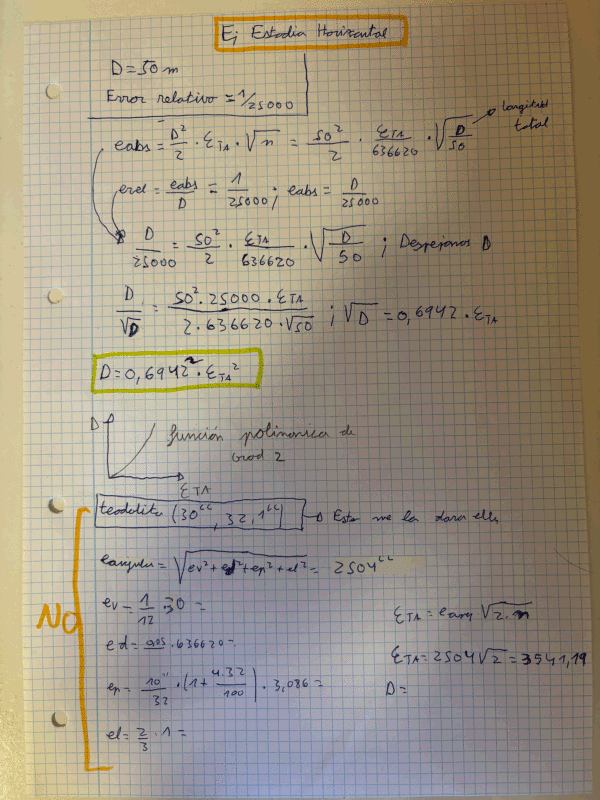 Ej Estadia Horizontal
D = 50 m
Error relativo = 1/25000
eabs = D²/2 · ETA · √n = 50²/2 · ETA/636620 · √(D/50) → longitud total
erel = eabs/D = 1/25000 ; eabs = D/25000
D/25000 = 50²/2 · ETA/636620 · √(D/50) ; Despejamos D
D/√D = 50² · 25000 · ETA / 2 · 636620 · √50 ; √D = 0,6942 · ETA
D = 0,6942² · ETA²
D
función polinomica de
Grad 2
ETA
teodolito (30ᶜᶜ, 32, 1ᶜᶜ) → Esto me lo dara ella
eangular = √(ev² + ed² + ep² + el²) = 2504ᶜᶜ
NO
ev = 1/12 · 30 =
ETA = eang √(2·n)
ed = 0,05 · 636620 =
ETA = 2504 √2 = 3541,19
ep = 10"/32 · (1 + 4·32/100) · 3,086 =
D =
el = 2/3 · 1 =